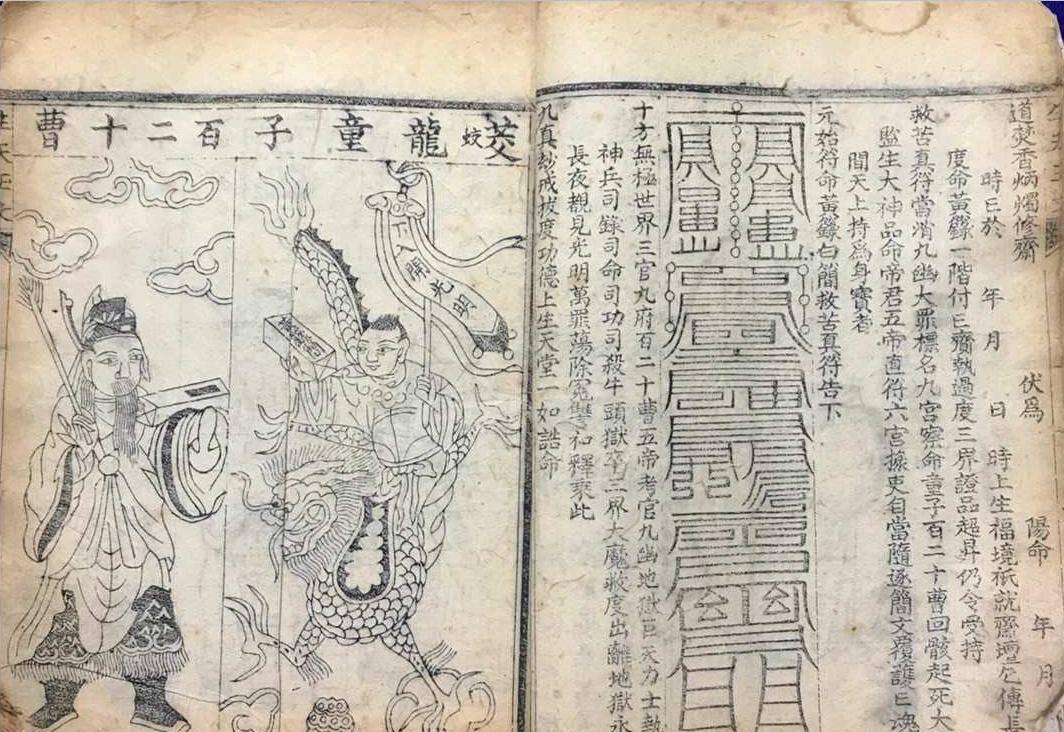 道焚香炳燭修齋 伏為 陽命 年 月
時巳於 年 月 日 時上生福境祇就齋壇 傳長
度命黃籙一階付巳齋執過度三界證品超昇仍令受持
救苦真符當消九幽大罪標名九宮察命童子百二十曹回骸起死大
監生大神品命帝君五帝直符六宮掾吏自當隨逐簡文覆護巳魂
聞天上持為身寶者
元始符命黃籙白簡救苦真符告下
十方無極世界三官九府百二十曹五帝考官九幽地獄巨天力士執
神兵司錄司命司功司殺牛頭獄卒三界大魔救度出離地獄永
長夜覩見光明萬罪蕩除冤讐和釋乘此
九真妙戒拔度功德上生天堂一如誥命
焚蛟龍童子百二十曹
開光明